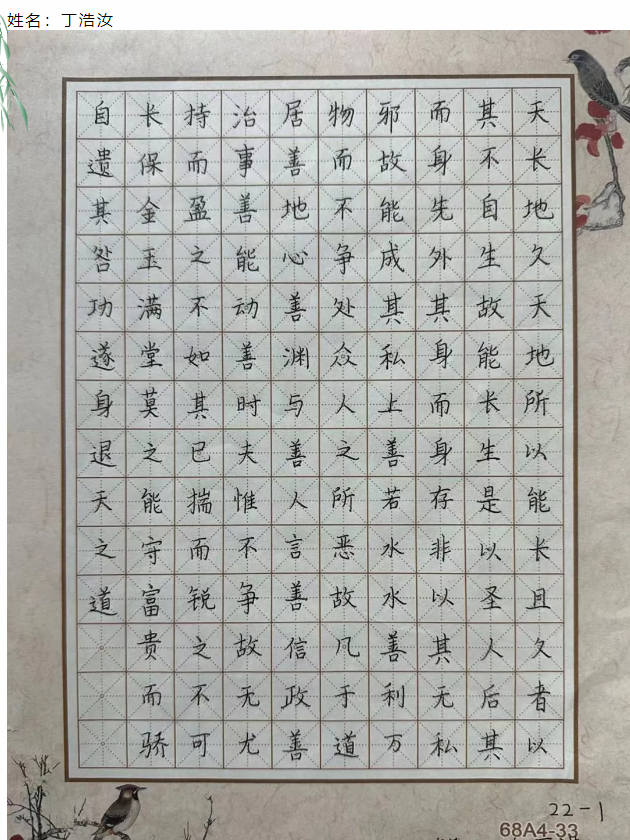 姓名：丁浩汝
天长地久天地所以能长且久者以
其不自生故能长生是以圣人后其
而身先外其身而身存非以其无私
邪故能成其私上善若水水善利万
物而不争处众人之所恶故凡于道
居善地心善渊与善人言善信政善
治事善能动善时夫惟不争故无尤
持而盈之不如其已揣而锐之不可
长保金玉满堂莫之能守富贵而骄
自遗其咎功遂身退天之道
22-1
68A4-33